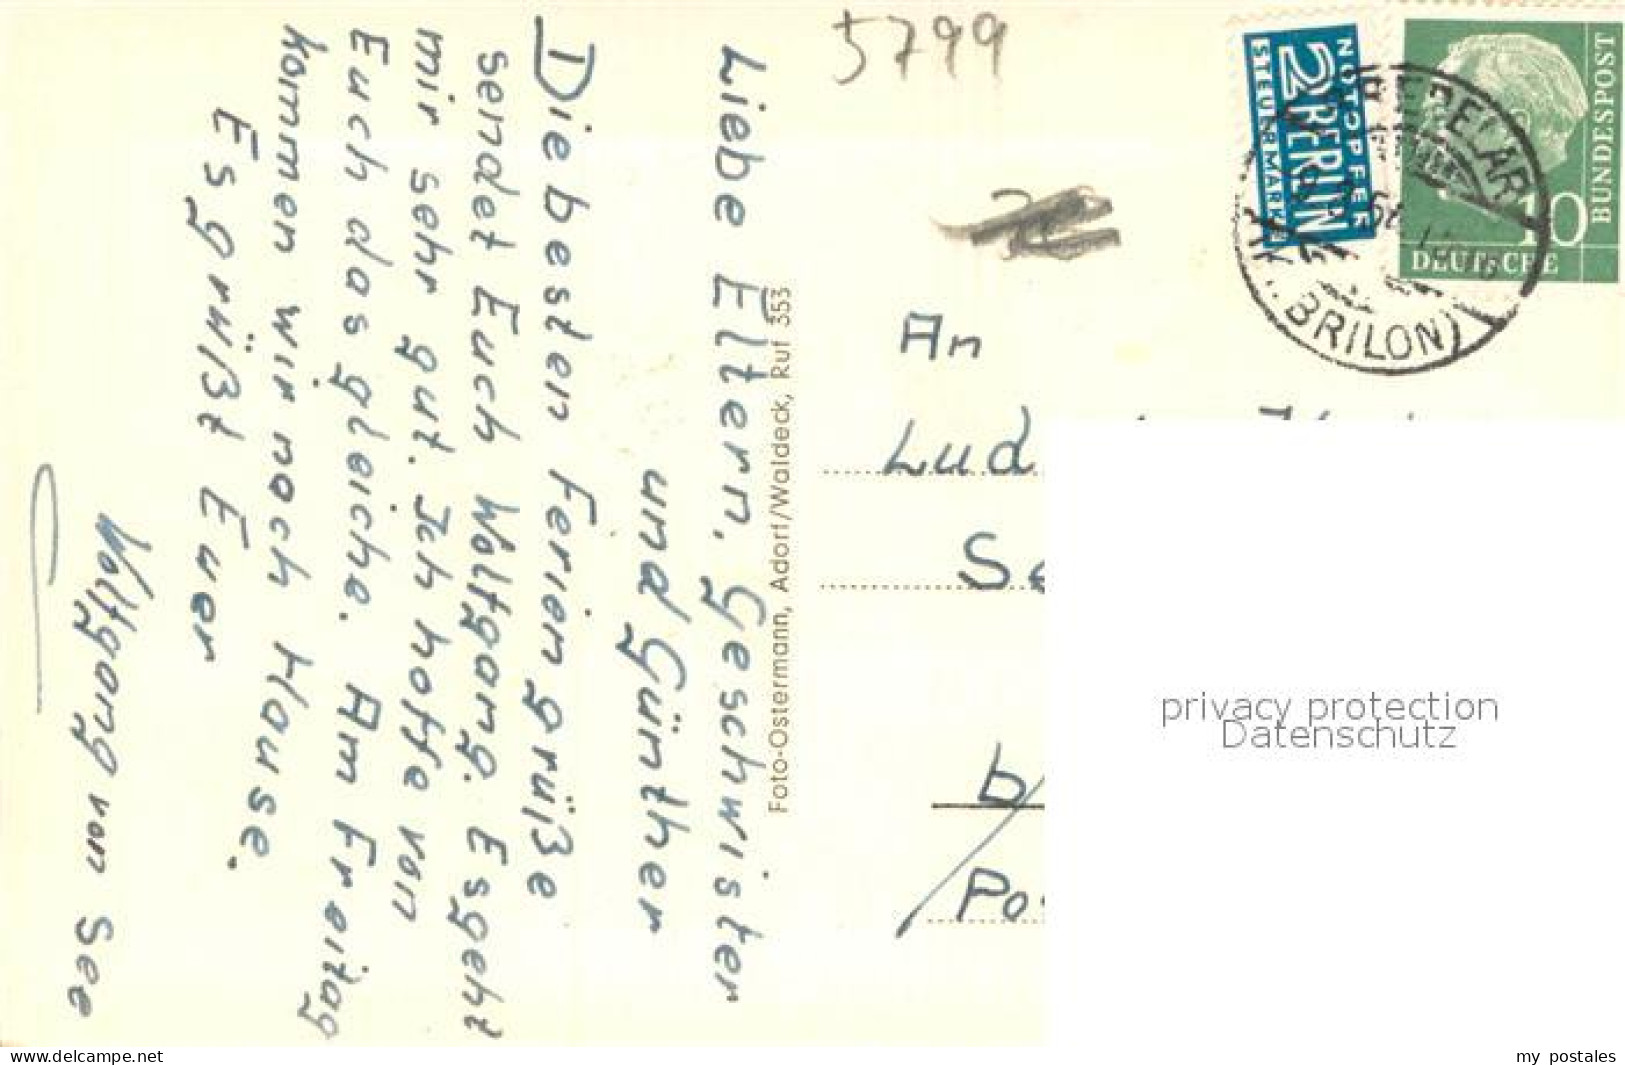 Liebe Eltern, Geschwister
und Günther
Die besten Feriengrüße
sendet Euch Wolfgang. Es geht
mir sehr gut. Ich hoffe von
Euch das gleiche. Am Freitag
kommen wir nach Hause.
Es grüßt Euer
Wolfgang von See
Foto-Ostermann, Adorf/Waldeck, Ruf 353
5799
NOTOPFER
2 BERLIN
STEUERMARKE
10
DEUTSCHE
BUNDESPOST
BREDELAR
(KR. BRILON)
An
Lud
b/
privacy protection
Datenschutz
www.delcampe.net
my postales